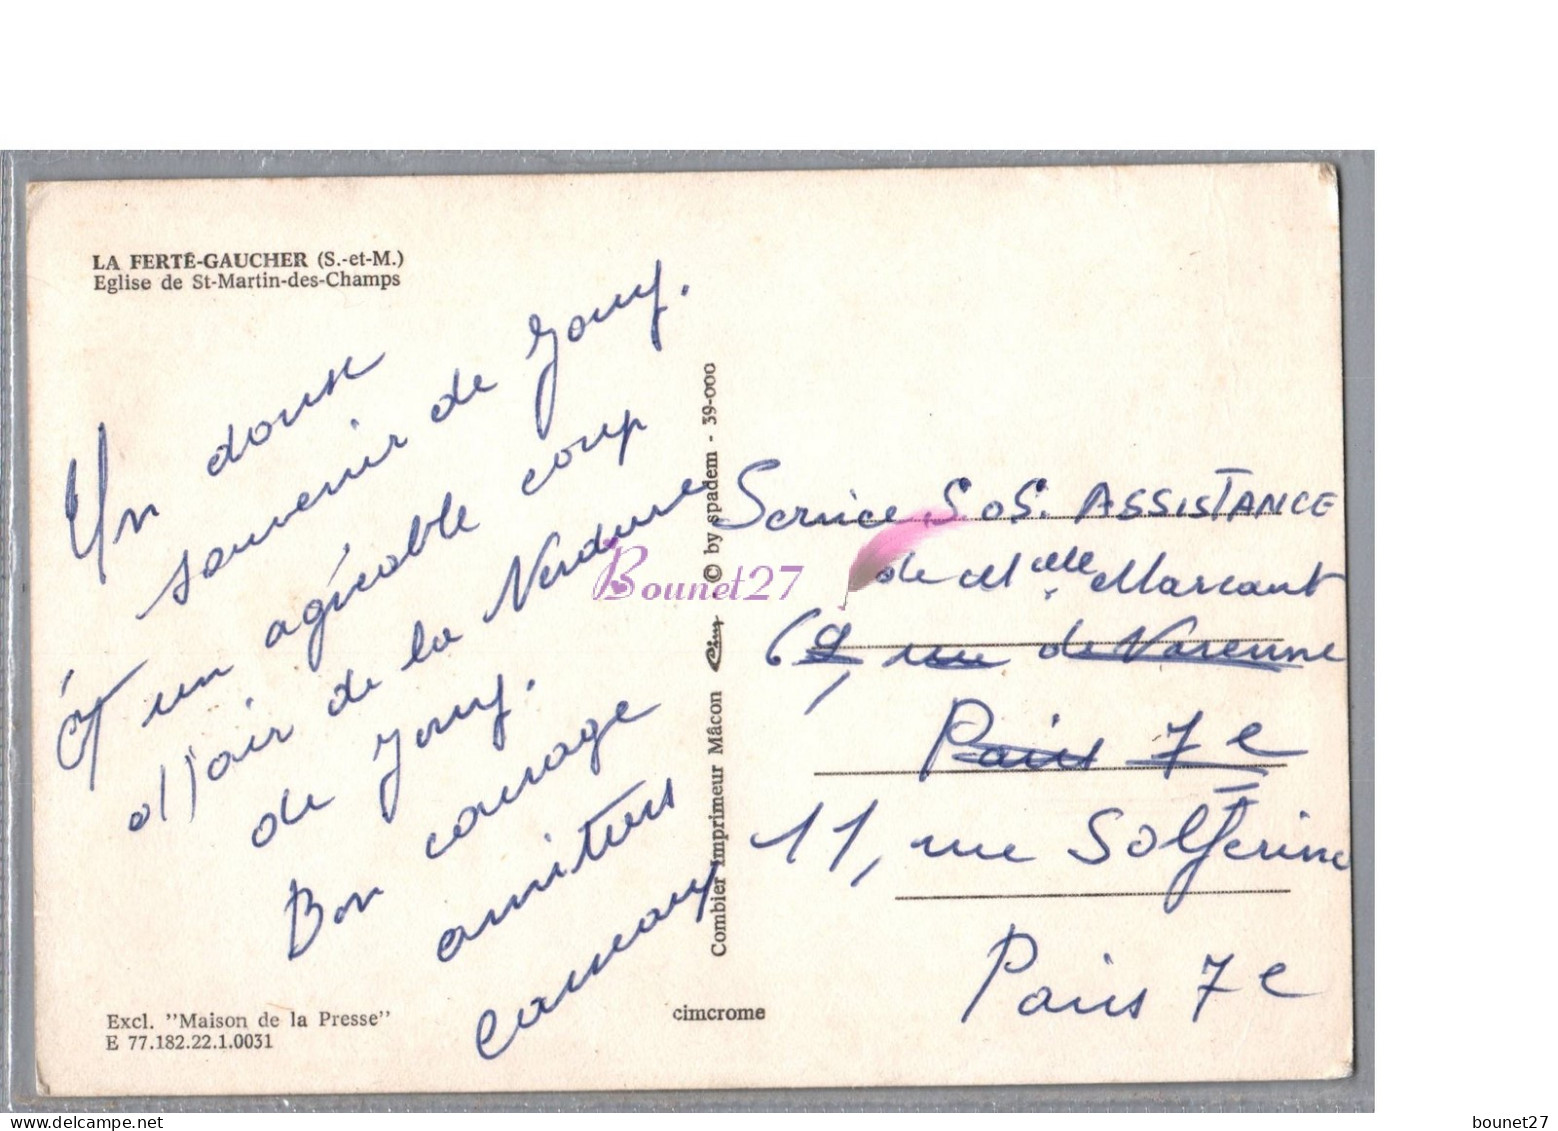 LA FERTÉ-GAUCHER (S.-et-M.)
Eglise de St-Martin-des-Champs
Un doux
souvenir de Jouy.
Et un agréable coup
d'air de la Verdure
de Jouy.
Bon courage
amitiés
Excl. "Maison de la Presse"
E 77.182.22.1.0031
cimcrome
Combier Imprimeur Mâcon Cim © by spadem - 39-000
Bounet27
Service S.O.S. ASSISTANCE
de Melle Marcant
69, rue de Varenne
Paris 7e
11, rue Solferino
Paris 7e
bounet27